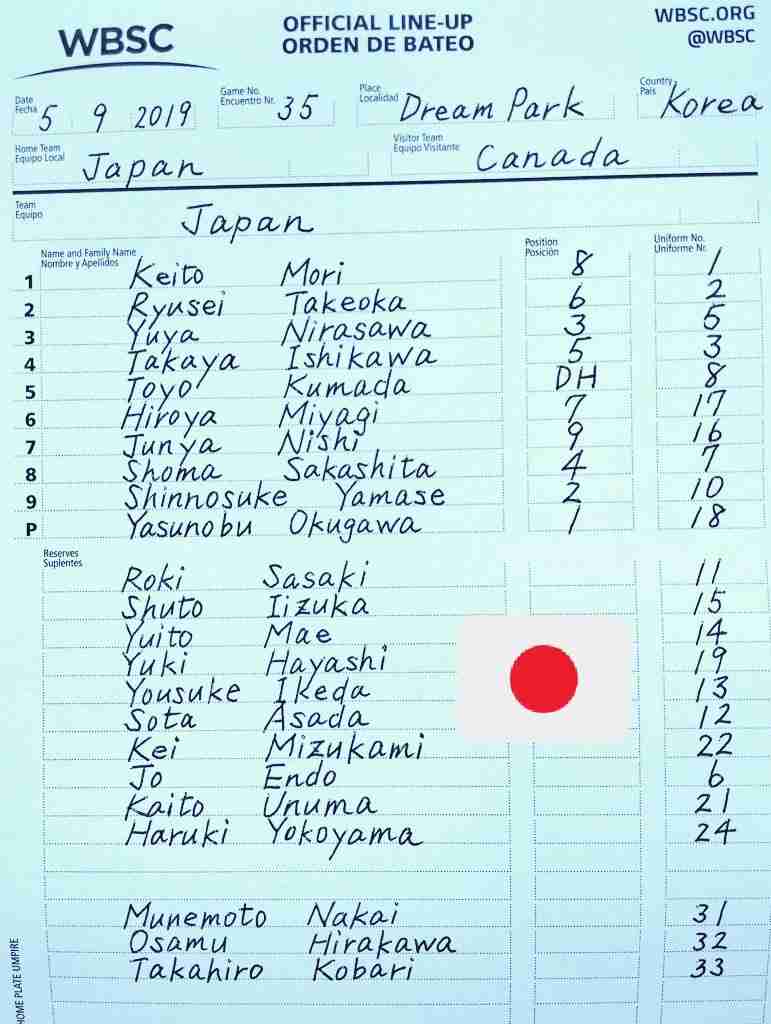 WBSC
OFFICIAL LINE-UP
ORDEN DE BATEO
WBSC.ORG
@WBSC
Date
Fecha
5 9 2019
Game No.
Encuentro Nr.
35
Place
Localidad
Dream Park
Country
País
Korea
Home Team
Equipo Local
Japan
Visitor Team
Equipo Visitante
Canada
Team
Equipo
Japan
Name and Family Name
Nombre y Apellidos
Position
Posición
Uniform No.
Uniforme Nr.
1 Keito Mori 8 1
2 Ryusei Takeoka 6 2
3 Yuya Nirasawa 3 5
4 Takaya Ishikawa 5 3
5 Toyo Kumada DH 8
6 Hiroya Miyagi 7 17
7 Junya Nishi 9 16
8 Shoma Sakashita 4 7
9 Shinnosuke Yamase 2 10
P Yasunobu Okugawa 1 18
Reserves
Suplentes
Roki Sasaki 11
Shuto Iizuka 15
Yuito Mae 14
Yuki Hayashi 19
Yousuke Ikeda 13
Sota Asada 12
Kei Mizukami 22
Jo Endo 6
Kaito Unuma 21
Haruki Yokoyama 24
Munemoto Nakai 31
Osamu Hirakawa 32
Takahiro Kobari 33
HOME PLATE UMPIRE